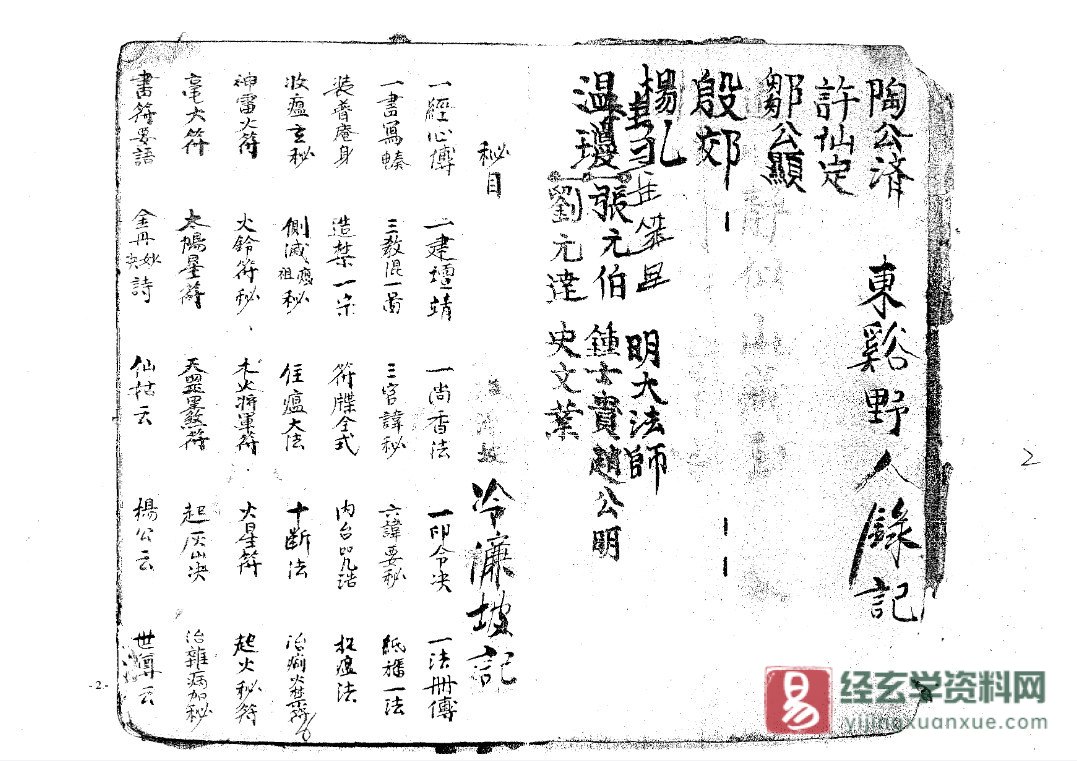 陶公濟
許仙定
鄒公顯
東谿野人錄記
殷郊
楊彪
溫瓊
張元伯
劉元達
明大法師
鍾士貴趙公明
史文業
冷濂坡記
秘目
一經心傳 一建壇靖 一尚香法 一印令决 一法冊傳
一書寫 三教混一圖 三官諱秘 六諱要秘 紙旛一法
裝普庵身 造禁一宗 符牒全式 內台咒诰 法
收瘟玄秘 側滅瘟祖秘 住瘟大法 十断法 治病火
神雷火符 火鈴符秘 木火將軍符 火星符 起火秘符
毫火符 太陽星符 天罡黑煞符 起灰山决 治雜病加秘
書符要語 金丹妙决詩 仙姑云 楊公云 世傳云
2
-2-
易
经玄学资料网
yijingxuanxue.com